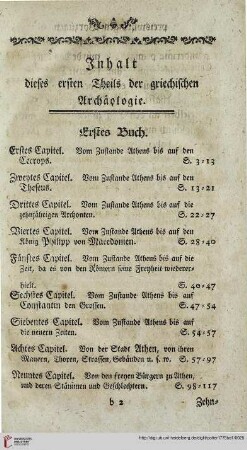 Inhalt
dieses ersten Theils der griechischen
Archäologie.
Erstes Buch.
Erstes Capitel. Vom Zustande Athens bis auf den
Cecrops. S. 3-13
Zweytes Capitel. Vom Zustande Athens bis auf den
Theseus. S. 13-21
Drittes Capitel. Vom Zustande Athens bis auf die
zehnjährigen Archonten. S. 22-27
Viertes Capitel. Vom Zustande Athens bis auf den
König Philipp von Macedonien. S. 28-40
Fünftes Capitel. Vom Zustande Athens bis auf die
Zeit, da es von den Römern seine Freyheit wiederer-
hielt. S. 40-47
Sechstes Capitel. Vom Zustande Athens bis auf
Constantin den Grossen. S. 47-54
Siebentes Capitel. Vom Zustande Athens bis auf
die neuern Zeiten. S. 54-57
Achtes Capitel. Von der Stadt Athen, von ihren
Mauern, Thoren, Strassen, Gebäuden u. s. w. S. 57-97
Neuntes Capitel. Von den freyen Bürgern zu Athen,
und deren Stämmen und Geschlechtern. S. 98-117
b 2 Zehn-